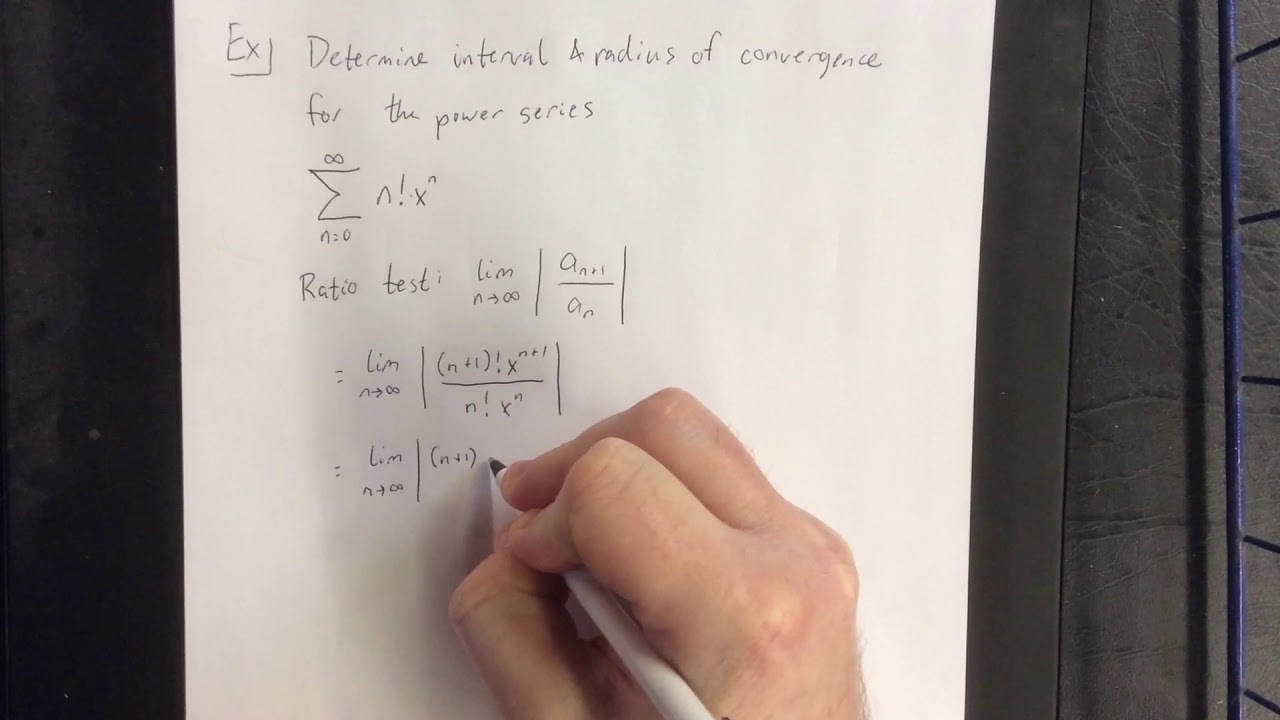 Ex] Determine interval & radius of convergence
for the power series
∞
∑ n!·xⁿ
n=0
Ratio test: lim | aₙ₊₁ / aₙ |
n→∞
= lim | (n+1)! xⁿ⁺¹ / n! xⁿ |
n→∞
= lim | (n+1)
n→∞